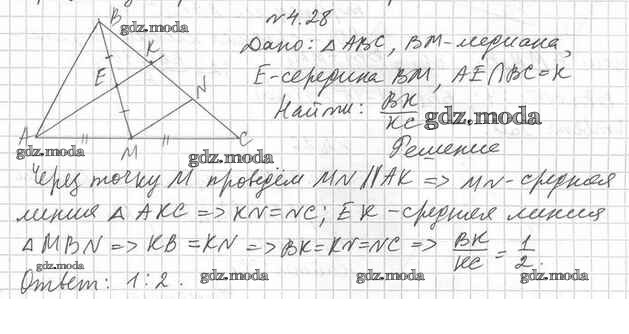 N4.28
Дано: △ABC, BM-медиана,
E-середина BM, AE∩BC=K
Найти: BK/KC
Решение
Через точку M проведём MN||AK => MN-средняя
линия △AKC => KN=NC; EK-средняя линия
△MBN => KB=KN => BK=KN=NC => BK/KC = 1/2.
Ответ: 1:2.
B
K
E
N
A
M
C
gdz.moda
gdz.moda
gdz.moda
gdz.moda
gdz.moda
gdz.moda
gdz.moda
gdz.moda